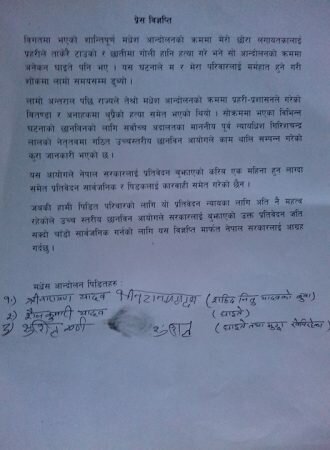 प्रेस विज्ञप्ति
विगतमा भएको शान्तिपूर्ण मधेश आन्दोलनको क्रममा मेरो छोरा लगायतकालाई
प्रहरीले ताकेरै टाउको र छातीमा गोली हानि हत्या गरे भने सो आन्दोलनको क्रममा
अनेकन घाइते पनि भए । यस घटनाले म र मेरा परिवारलाई मर्माहात हुने गरी
शोकमा लामो समयसम्म डुब्यौ ।
लामो अन्तराल पछि राज्यले तेश्रो मधेश आन्दोलनको क्रममा प्रहरी-प्रशासनले गरेको
वितण्डा र अनाहकमा थुप्रैको हत्या समेत भएको थियो । सोक्रममा भएका विभिन्न
घटनाको छानविनको लागि सर्वोच्च अदालतका माननीय पूर्व न्यायधिश गिरिशचन्द्र
लालको नेतृतवमा गठित उच्चस्तरीय छानविन आयोगले काम थालि सम्पन्न गरेको
कुरा जानकारी भएको छ ।
यस आयोगले नेपाल सरकारलाई प्रतिवेदन बुझाएको करिव एक महिना हुन लाग्दा
समेत प्रतिवेदन सार्वजनिक र पिडकलाई कारवाही समेत गरेको छैन ।
जबकी हामी पिडित परिवारको लागि यो प्रतिवेदन न्यायका लागि अति नै महत्व
रहेकोले उच्च स्तरीय छानविन आयोगले सरकारलाई बुझाएको उक्त प्रतिवेदन जति
सक्दो चाँडो सार्वजनिक गर्नको लागि यस विज्ञप्ति मार्फत नेपाल सरकारलाई आग्रह
गर्दछु ।
मधेस आन्दोलन पिडितहरुः
१) श्रीनारायण यादव
२) शैलकुमारी यादव (घाइते)
३) (घाइते तथा मुद्दा